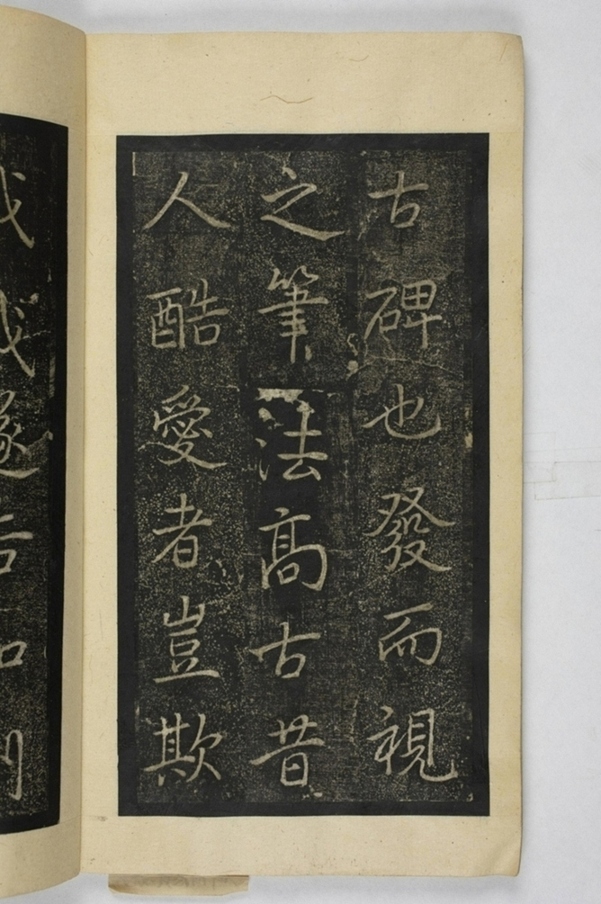 古碑也發而視
之筆法高古昔
人酷愛者豈欺